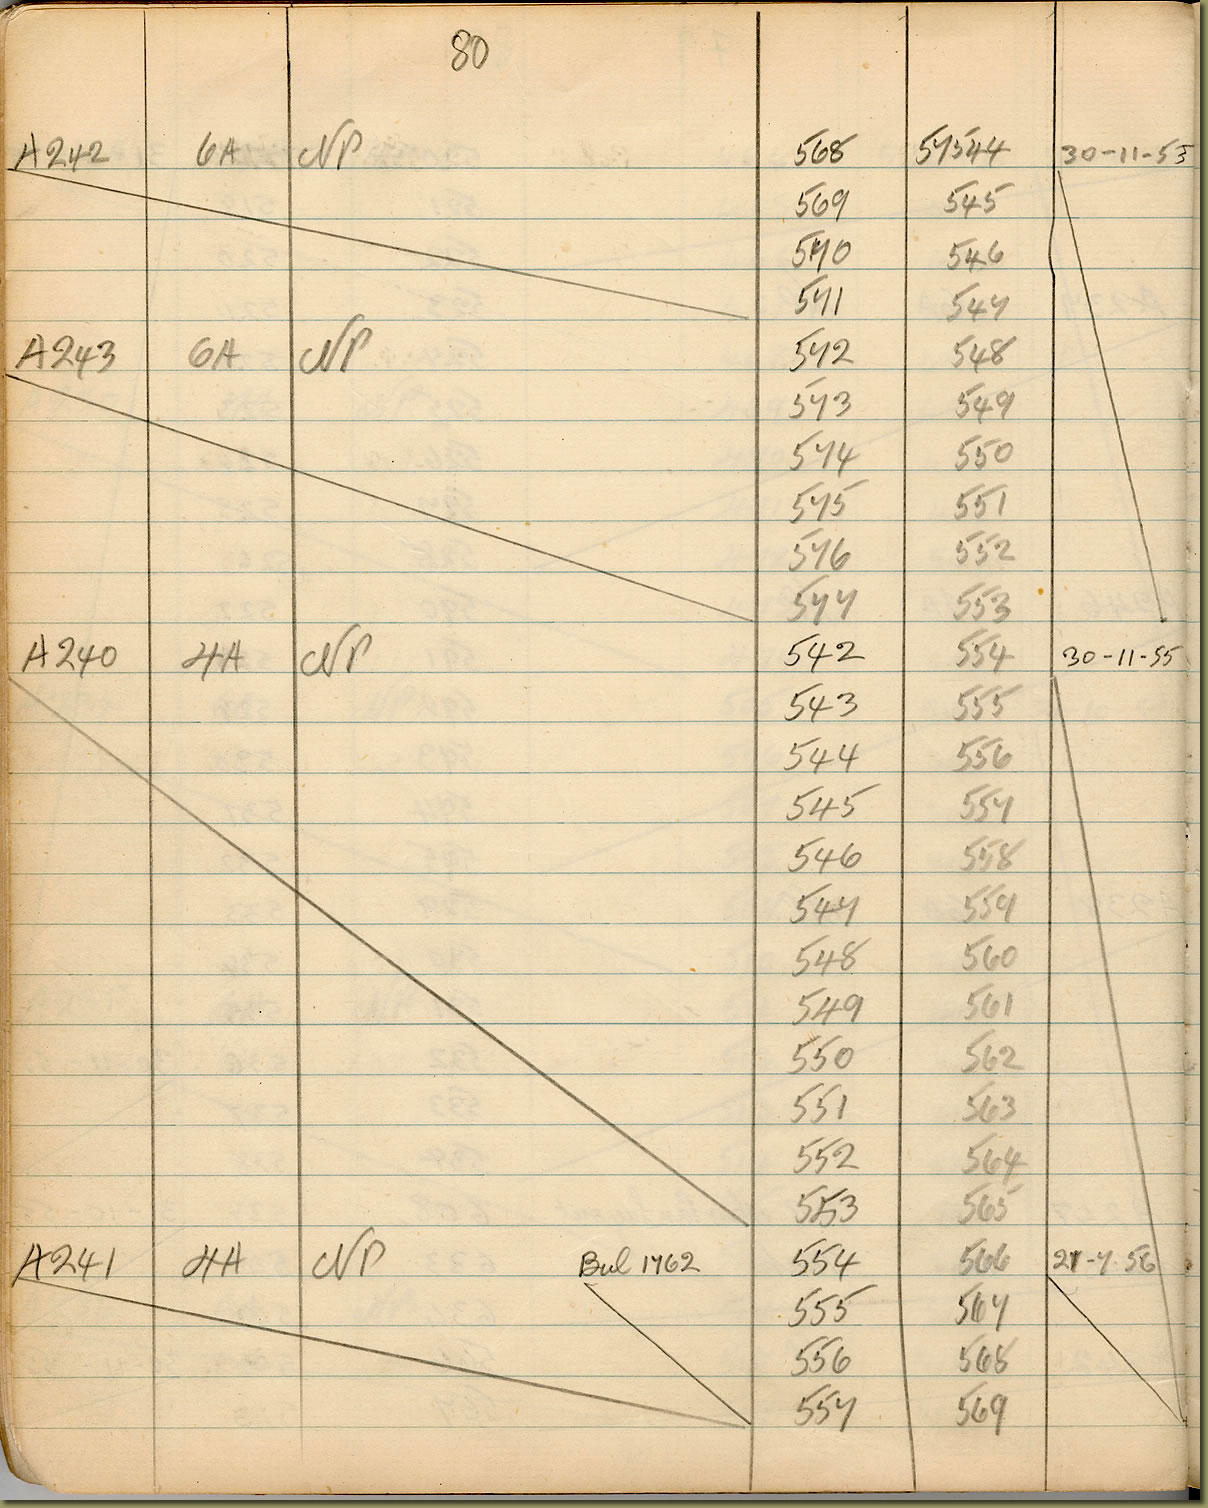 80
A242 6A NP 568 57544 30-11-53
569 545
570 546
571 547
A243 6A NP 572 548
573 549
574 550
575 551
576 552
577 553
A240 4A NP 542 554 30-11-55
543 555
544 556
545 557
546 558
547 559
548 560
549 561
550 562
551 563
552 564
553 565
A241 4A NP Bul 1762 554 566 21-7-56
555 567
556 568
557 569